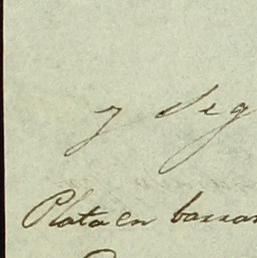 y Seg
Plata en barras